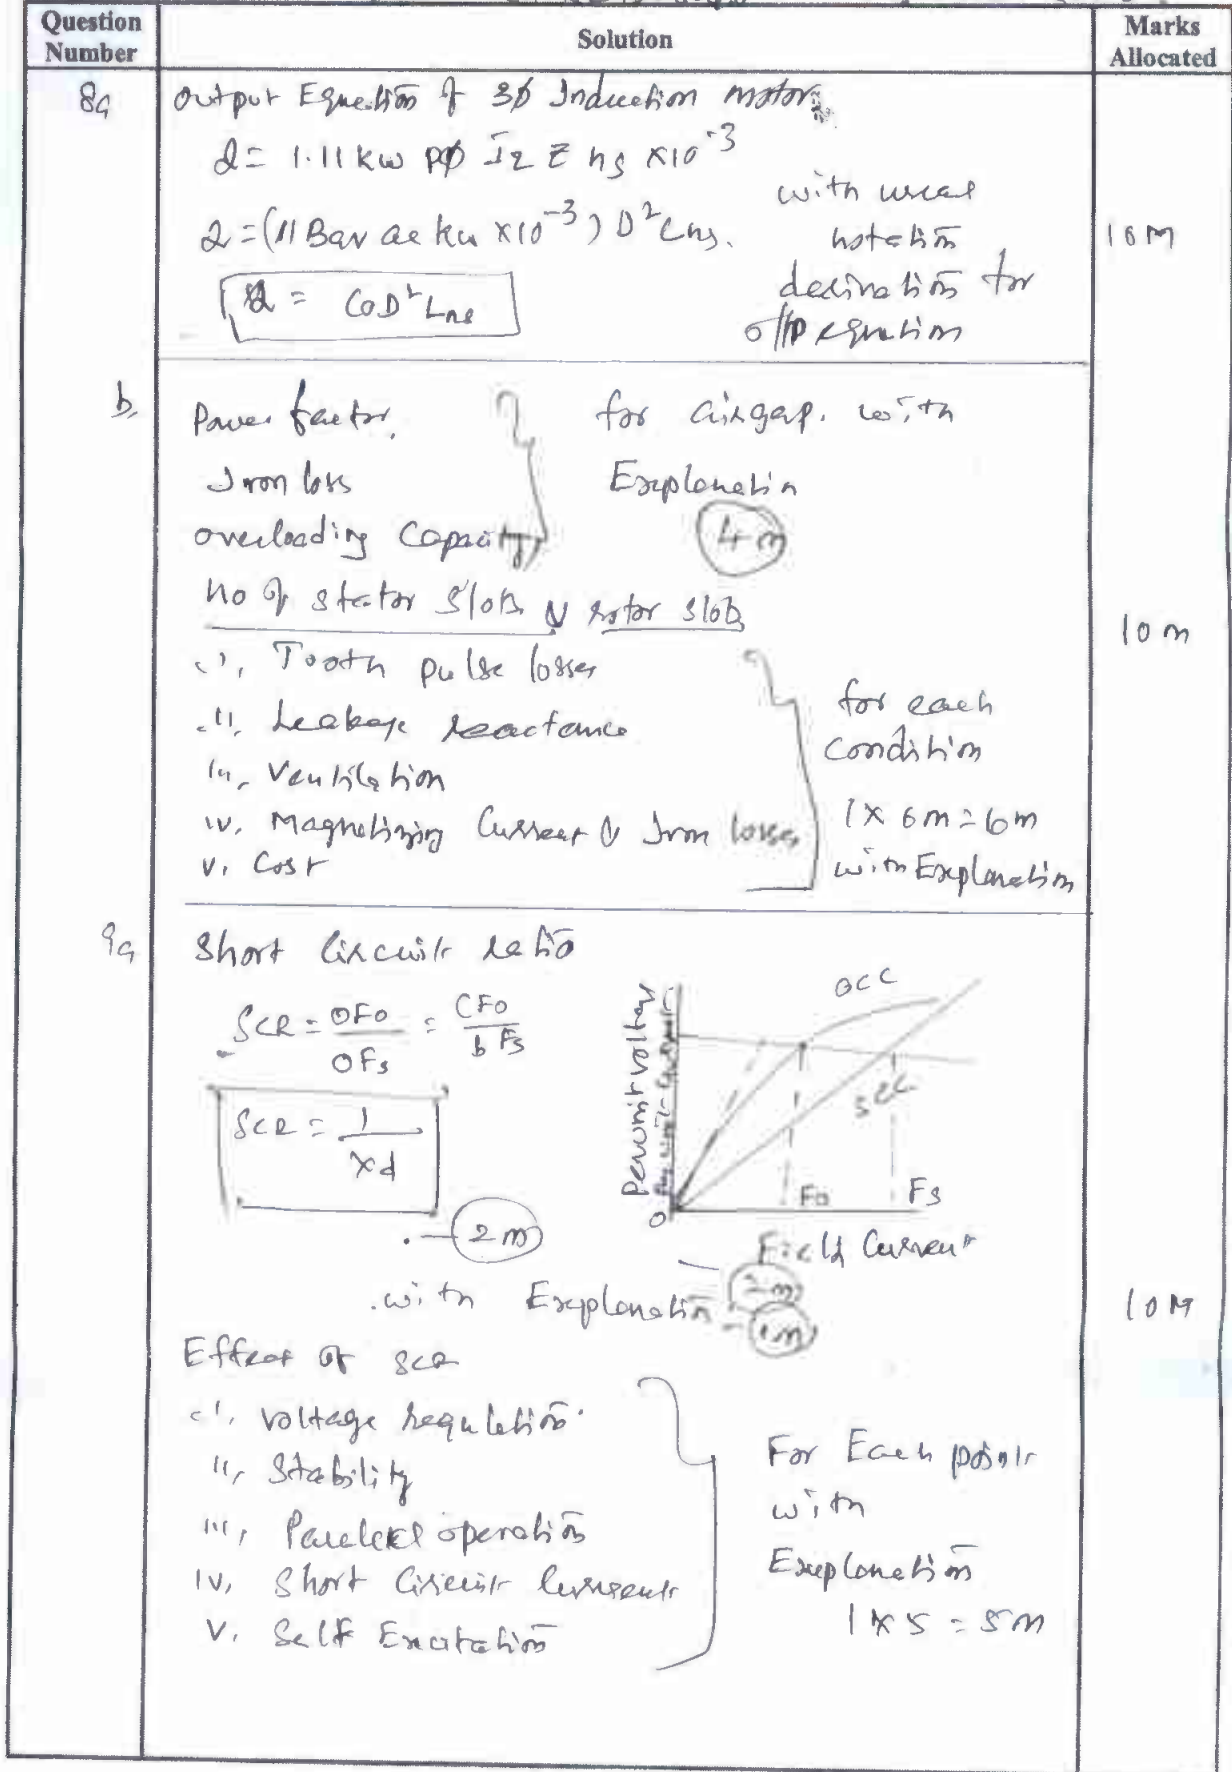 Question Number
Solution
Marks Allocated
8a
Output Equation of 3ϕ Induction motor
Q = 1.11 kw pϕ Iz Z ns x10⁻³
Q = (11 Bav ac kw x10⁻³) D² L ns.
with usual
notation
derivation for
o/p equation
Q = CoD²Lns
10M
b,
Power factor,
Iron loss
overloading Capacity
for airgap. with
Explanation
4m
no of stator slots & rotor slots
i, Tooth pulse losses
ii, Leakage reactance
iii, Ventilation
iv. Magnetizing Current & Iron losses
v. Cost
for each
condition
1 x 6m = 6m
with Explanation
10m
9a
Short Circuit ratio
SCR = OFo / OFs = CFo / bFs
SCR = 1 / Xd
2m
Per unit voltage
OCC
SCC
O
Fo
Fs
Field Current
2m
with Explanation - 1m
10M
Effect of SCR
i, voltage regulation.
ii, Stability
iii, Parallel operation
iv, Short Circuit Current
v. Self Excitation
For Each point
with
Explanation
1 x 5 = 5m